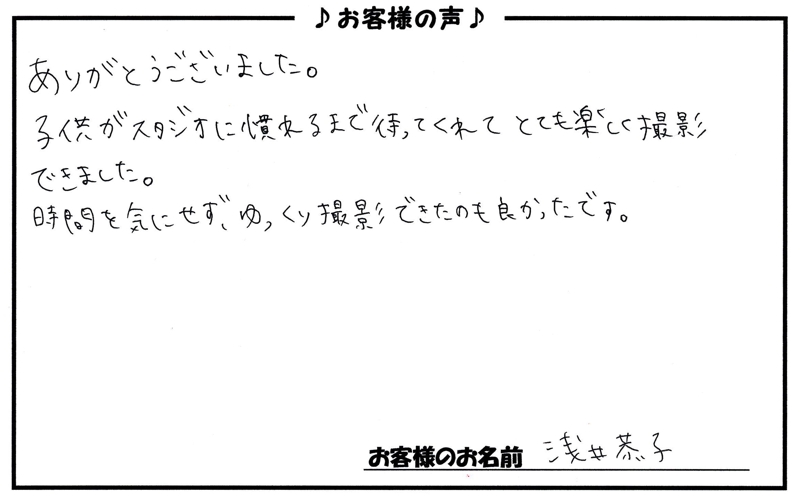 ♪お客様の声♪
ありがとうございました。
子供がスタジオに慣れるまで待ってくれて とても楽しく撮影
できました。
時間を気にせず、ゆっくり撮影できたのも良かったです。
お客様のお名前 浅井恭子